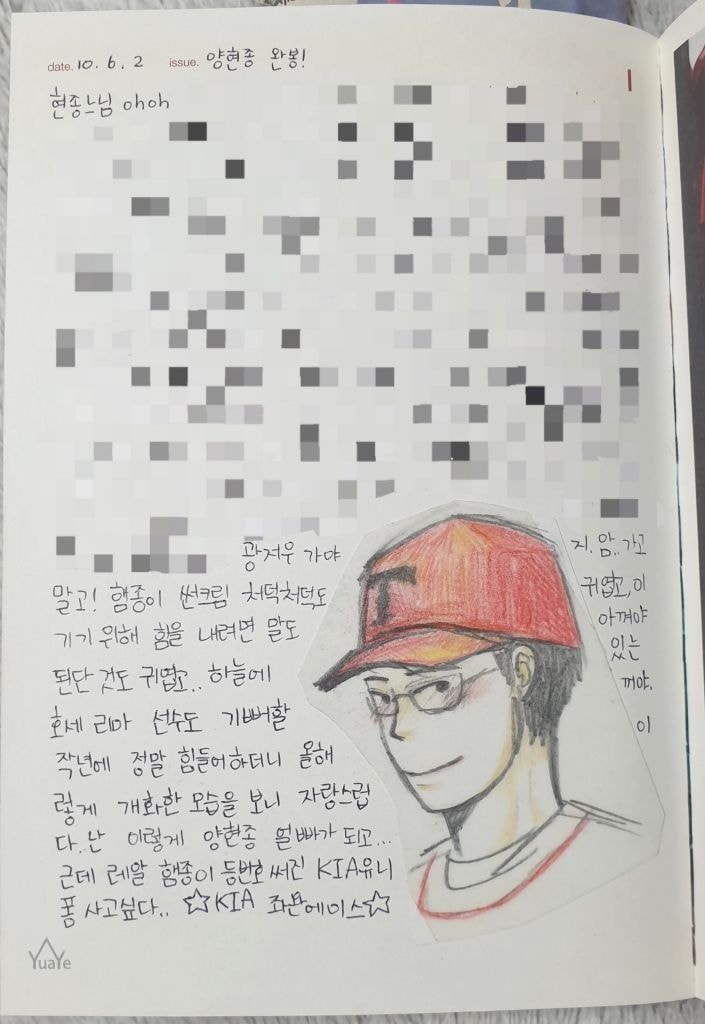 date. 10. 6. 2 issue. 양현종 완봉!
현종느님 ohoh
광저우 가야지. 암.. 가고
말고! 햄종이 썬크림 처덕처덕도 귀엽고, 이
기기 위해 힘을 내려면 말도 아껴야
된단 것도 귀엽고.. 하늘에 있는
호세 리마 선수도 기뻐할 꺼야.
작년에 정말 힘들어하더니 올해 이
렇게 개화한 모습을 보니 자랑스럽
다. 난 이렇게 양현종 얼빠가 되고...
근데 레알 햄종이 등번호 써진 KIA유니
폼 사고싶다.. ☆KIA 좌완에이스☆
T
YuaYe